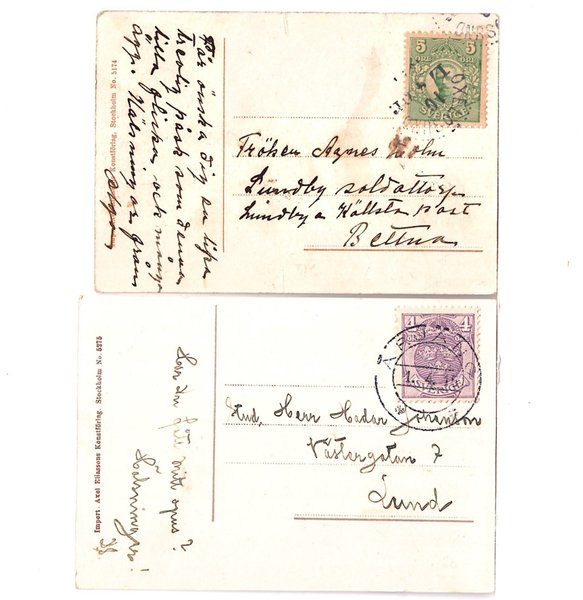 Får önska dig en lika
trevlig påsk som denna
lilla flicka och många
app. Hälsningar från
Konstföring, Stockholm No. 5174
5 5
ÖRE
Fröken Agnes Holm
Lundby soldattorp
Lundby a Källsta post
Bettna
Import. Axel Eliassons Konstföring. Stockholm No. 5275
Har Du fått mitt opus?
Hälsningar!
4 4
SVERIGE
Stud. Herr Hadar Johanson
Västergatan 7
Lund